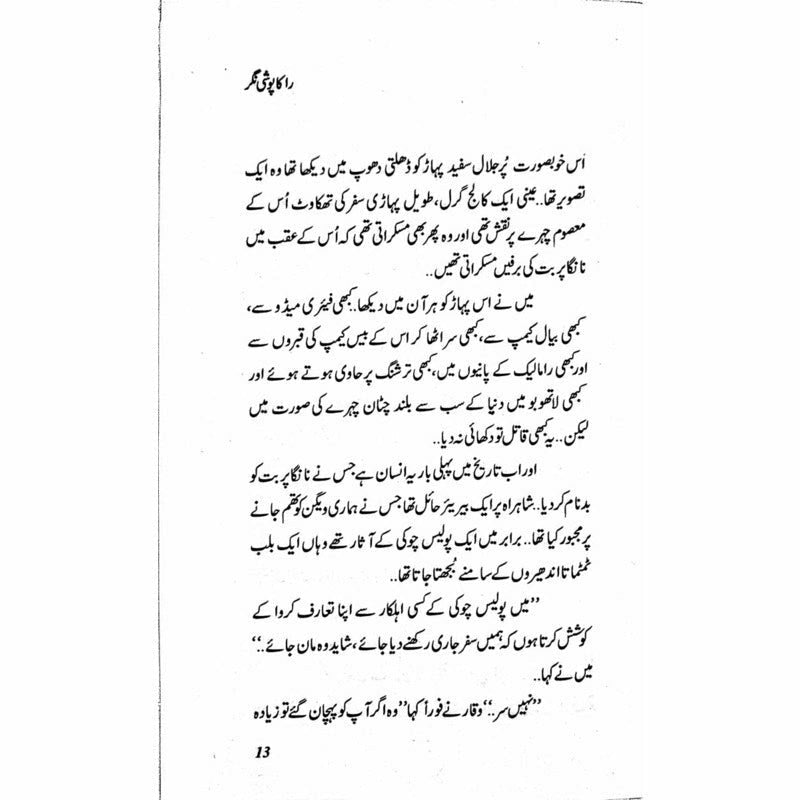 راکاپوشی نگر
اُس خوبصورت پُرجلال سفید پہاڑ کو ڈھلتی دھوپ میں دیکھا تھا وہ ایک
تصویر تھا.. عینی ایک کالج گرل، طویل پہاڑی سفر کی تھکاوٹ اُس کے
معصوم چہرے پر نقش تھی اور وہ پھر بھی مسکراتی تھی کہ اُس کے عقب میں
نانگا پربت کی برفیں مسکراتی تھیں..
میں نے اس پہاڑ کو ہر آن میں دیکھا.. کبھی فیئری میڈو سے،
کبھی بیال کیمپ سے، کبھی سر اٹھا کر اس کے بیس کیمپ کی قبروں سے
اور کبھی راما لیک کے پانیوں میں، کبھی ترشنگ پر حاوی ہوتے ہوئے اور
کبھی لاتھوبو میں دنیا کے سب سے بلند چٹان چہرے کی صورت میں
لیکن.. یہ کبھی قاتل تو دکھائی نہ دیا..
اور اب تاریخ میں پہلی بار یہ انسان ہے جس نے نانگا پربت کو
بدنام کر دیا.. شاہراہ پر ایک بیریئر حائل تھا جس نے ہماری ویگن کو تھم جانے
پر مجبور کیا تھا.. برابر میں ایک پولیس چوکی کے آثار تھے وہاں ایک بلب
ٹمٹماتا اندھیروں کے سامنے بُجھتا جاتا تھا..
”میں پولیس چوکی کے کسی اہلکار سے اپنا تعارف کروا کے
کوشش کرتا ہوں کہ ہمیں سفر جاری رکھنے دیا جائے، شاید وہ مان جائے..“
میں نے کہا..
”نہیں سر..“ وقار نے فوراً کہا ”وہ اگر آپ کو پہچان گئے تو زیادہ
13